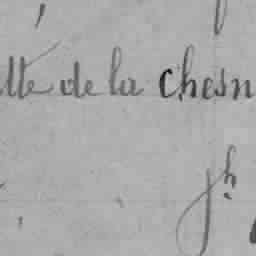 tte de la Chesn
Jh